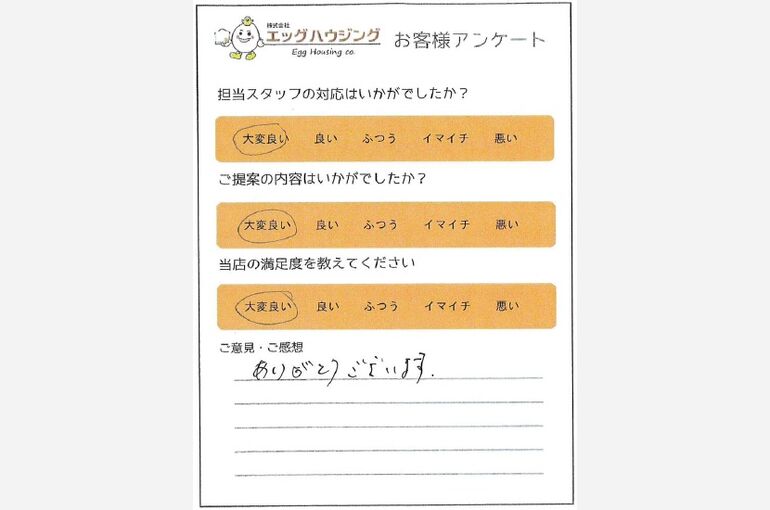 株式会社
エッグハウジング
Egg Housing co.
お客様アンケート
担当スタッフの対応はいかがでしたか？
大変良い 良い ふつう イマイチ 悪い
ご提案の内容はいかがでしたか？
大変良い 良い ふつう イマイチ 悪い
当店の満足度を教えてください
大変良い 良い ふつう イマイチ 悪い
ご意見・ご感想
ありがとうございます.